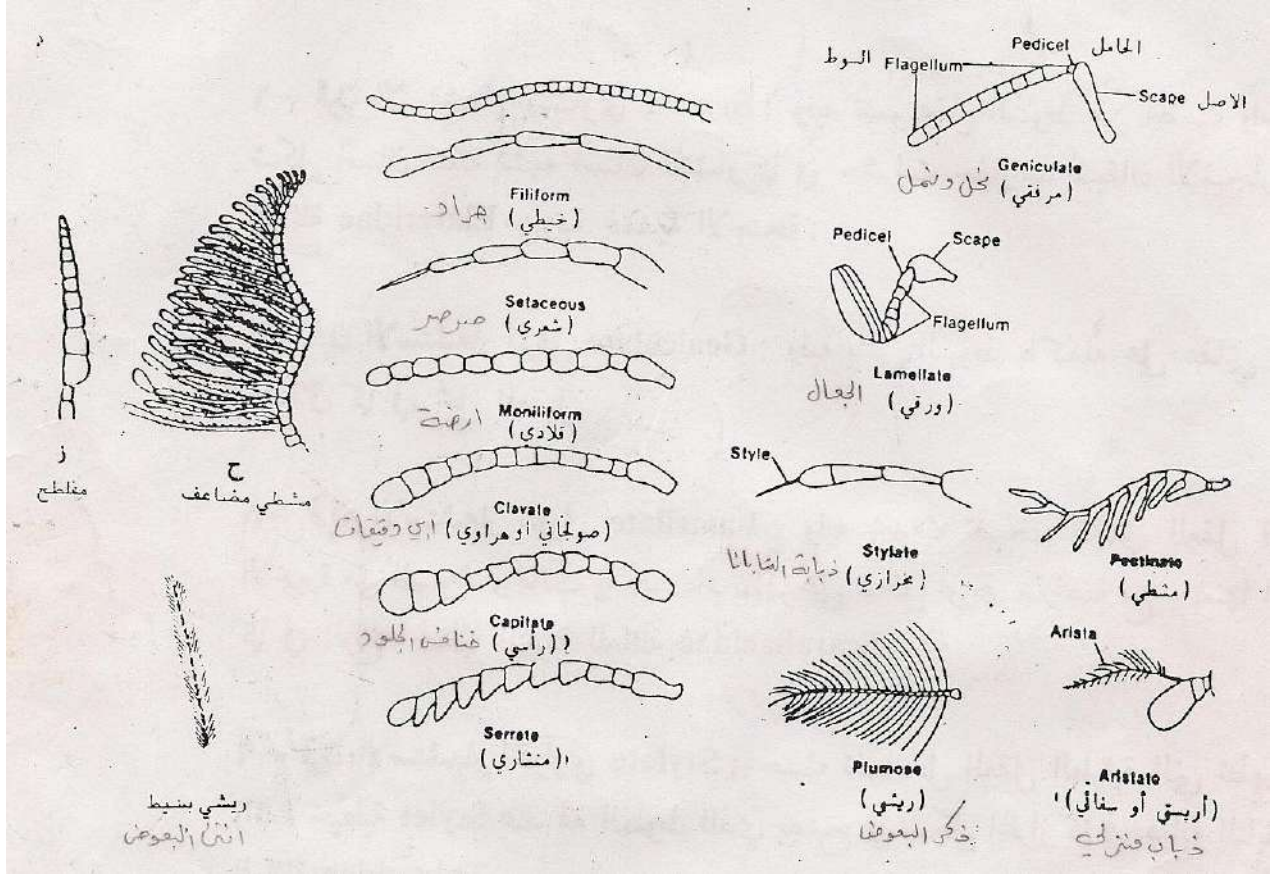 ز
مفلطح
ح
مشطي مضاعف
ريشي بسيط
انثى البعوض
Filiform
(خيطي) جراد
Setaceous
(شعري) صرصر
Moniliform
(قلادي) ارضة
Clavate
(صولجاني أو هراوي) ابي دقيقات
Capitate
(رأسي) خنافس الجلود
Serrate
(منشاري)
Pedicel الحامل
السوط Flagellum
Scape الاصل
Geniculate
(مرفقي) نحل ونمل
Pedicel
Scape
Flagellum
Lamellate
(ورقي) الجعال
Style
Stylate
(مخرازي) ذبابة التابانا
Pectinate
(مشطي)
Plumose
(ريشي)
ذكر البعوض
Arista
Aristate
(أريستي أو سفائي)
ذباب منزلي